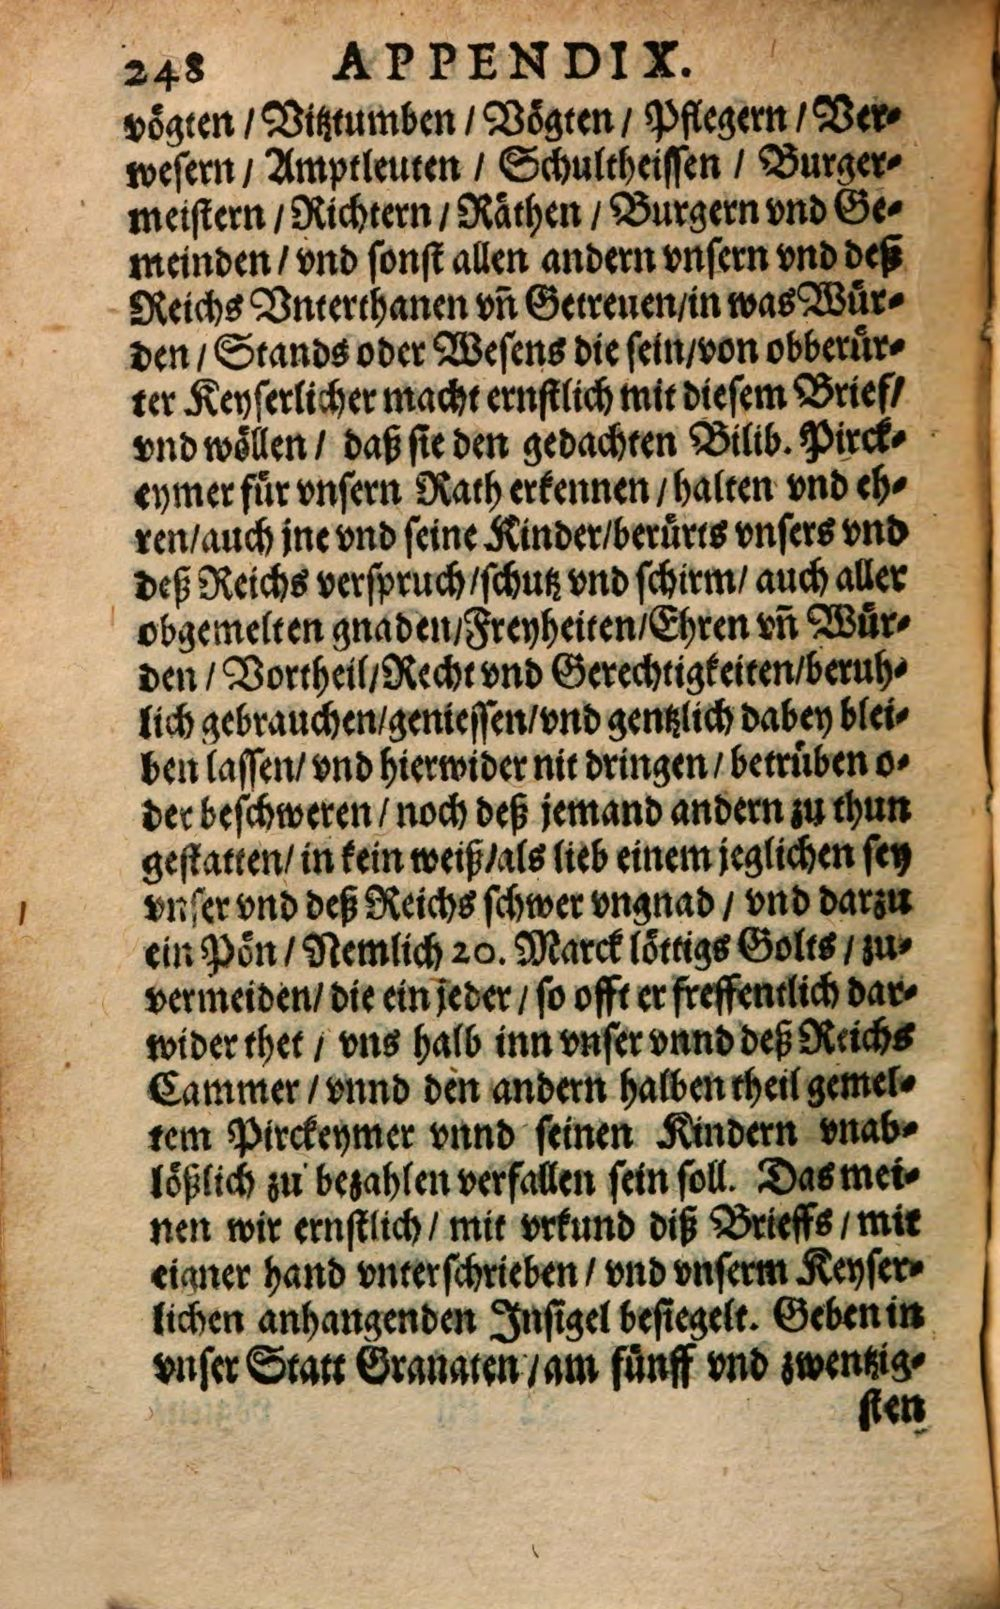 248 APPENDIX.
vögten / Vitztumben / Vögten / Pflegern / Ver-
wesern / Amptleuten / Schultheissen / Burger-
meistern / Richtern / Räthen / Burgern vnd Ge-
meinden / vnd sonst allen andern vnsern vnd deß
Reichs Vnterthanen vñ Getreuen/in was Wür-
den / Stands oder Wesens die sein/von obberür-
ter Keyserlicher macht ernstlich mit diesem Brief/
vnd wöllen / daß sie den gedachten Bilib. Pirck-
eymer für vnsern Rath erkennen / halten vnd eh-
ren/auch jne vnd seine Kinder/berürts vnsers vnd
deß Reichs verspruch/schutz vnd schirm/ auch aller
obgemelten gnaden/Freyheiten/Ehren vñ Wür-
den / Vortheil/Recht vnd Gerechtigkeiten/beruh-
lich gebrauchen/geniessen/vnd gentzlich dabey blei-
ben lassen/ vnd hierwider nit dringen / betrüben o-
der beschweren / noch deß jemand andern zu thun
gestatten/ in kein weiß/als lieb einem jeglichen sey
vnser vnd deß Reichs schwer vngnad / vnd darzu
ein Pön / Nemlich 20. Marck löttigs Golts / zu-
vermeiden/ die ein jeder / so offt er freffentlich dar-
wider thet / vns halb inn vnser vnnd deß Reichs
Cammer / vnnd den andern halben theil gemel-
tem Pirckeymer vnnd seinen Kindern vnab-
lößlich zu bezahlen verfallen sein soll. Das mei-
nen wir ernstlich / mit vrkund diß Brieffs / mit
eigner hand vnterschrieben / vnd vnserm Keyser-
lichen anhangenden Insigel besiegelt. Geben in
vnser Statt Granaten / am fünff vnd zwentzig-
sten